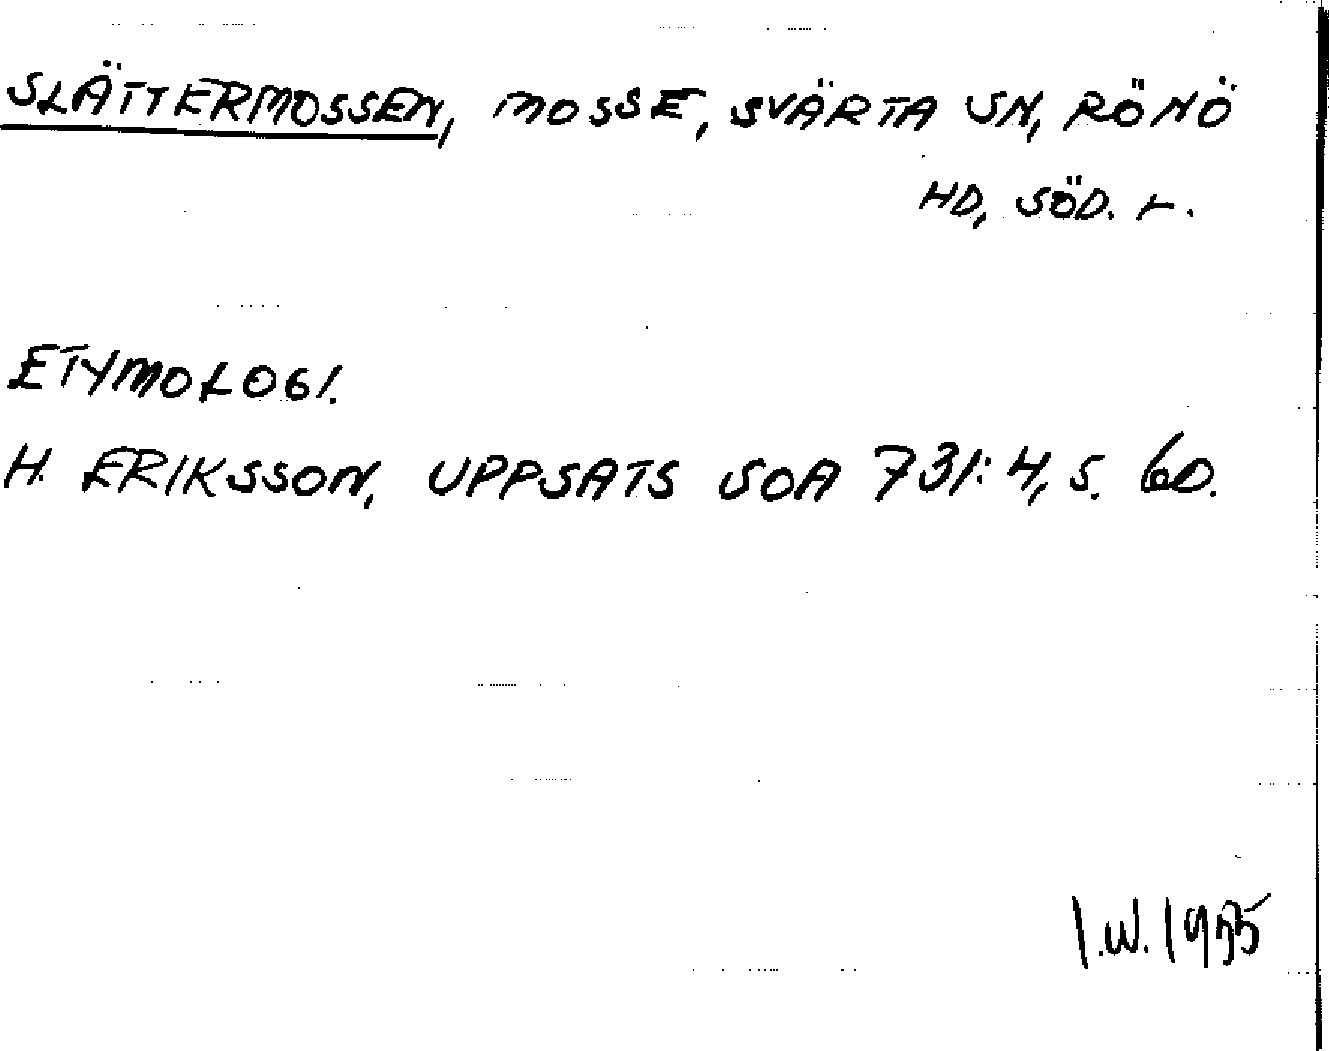 SLÄTTERMOSSEN, MOSSE, SVÄRTA SN, RÖNÖ
HD, SÖD. L.
ETYMOLOGI.
H. ERIKSSON, UPPSATS SOA 731:4, S. 60.
I.W. 1955